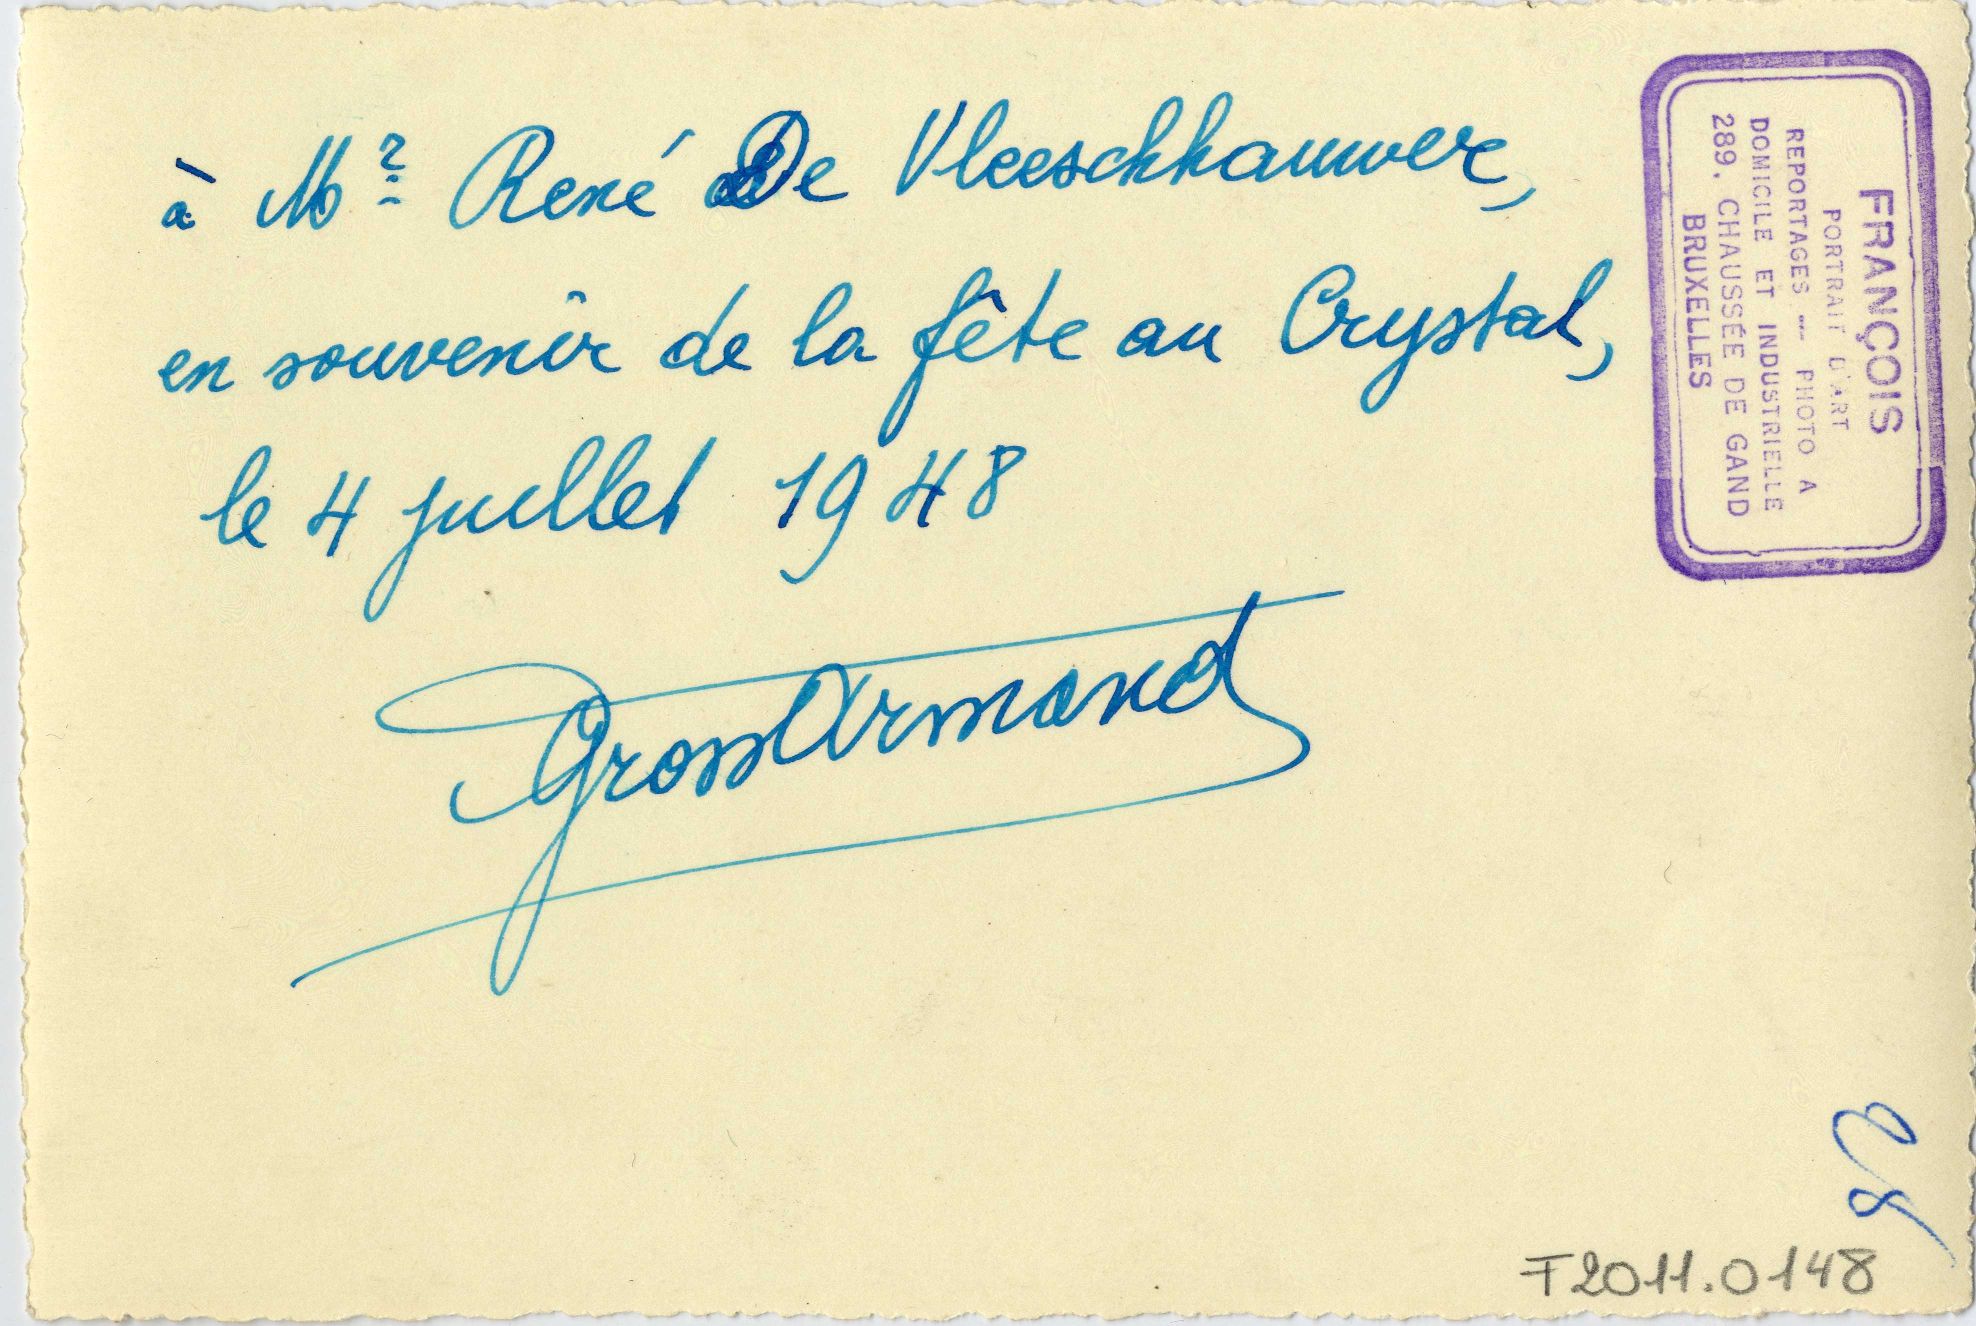 à Mr René De Vleeschhauwer,
en souvenir de la fête au Crystal,
le 4 juillet 1948
Gross Armand
FRANÇOIS
PORTRAIT D'ART
REPORTAGES — PHOTO A
DOMICILE ET INDUSTRIELLE
289, CHAUSSÉE DE GAND
BRUXELLES
F2011.0148